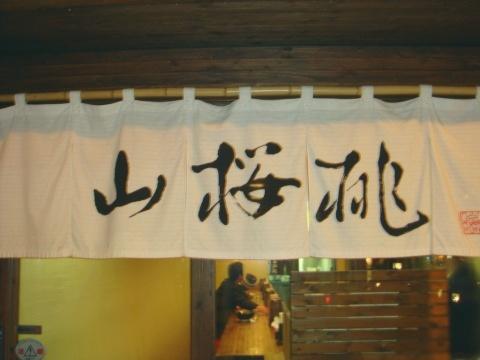 山桜桃